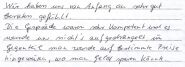 Wir haben uns von Anfang an sehr gut
beraten gefühlt.
Die Gespräche waren sehr kompetent und es
wurde uns nichts aufgedrängelt im
Gegenteil man wurde auf bestimmte Preise
hingewiesen, wo man Geld sparen könnte.